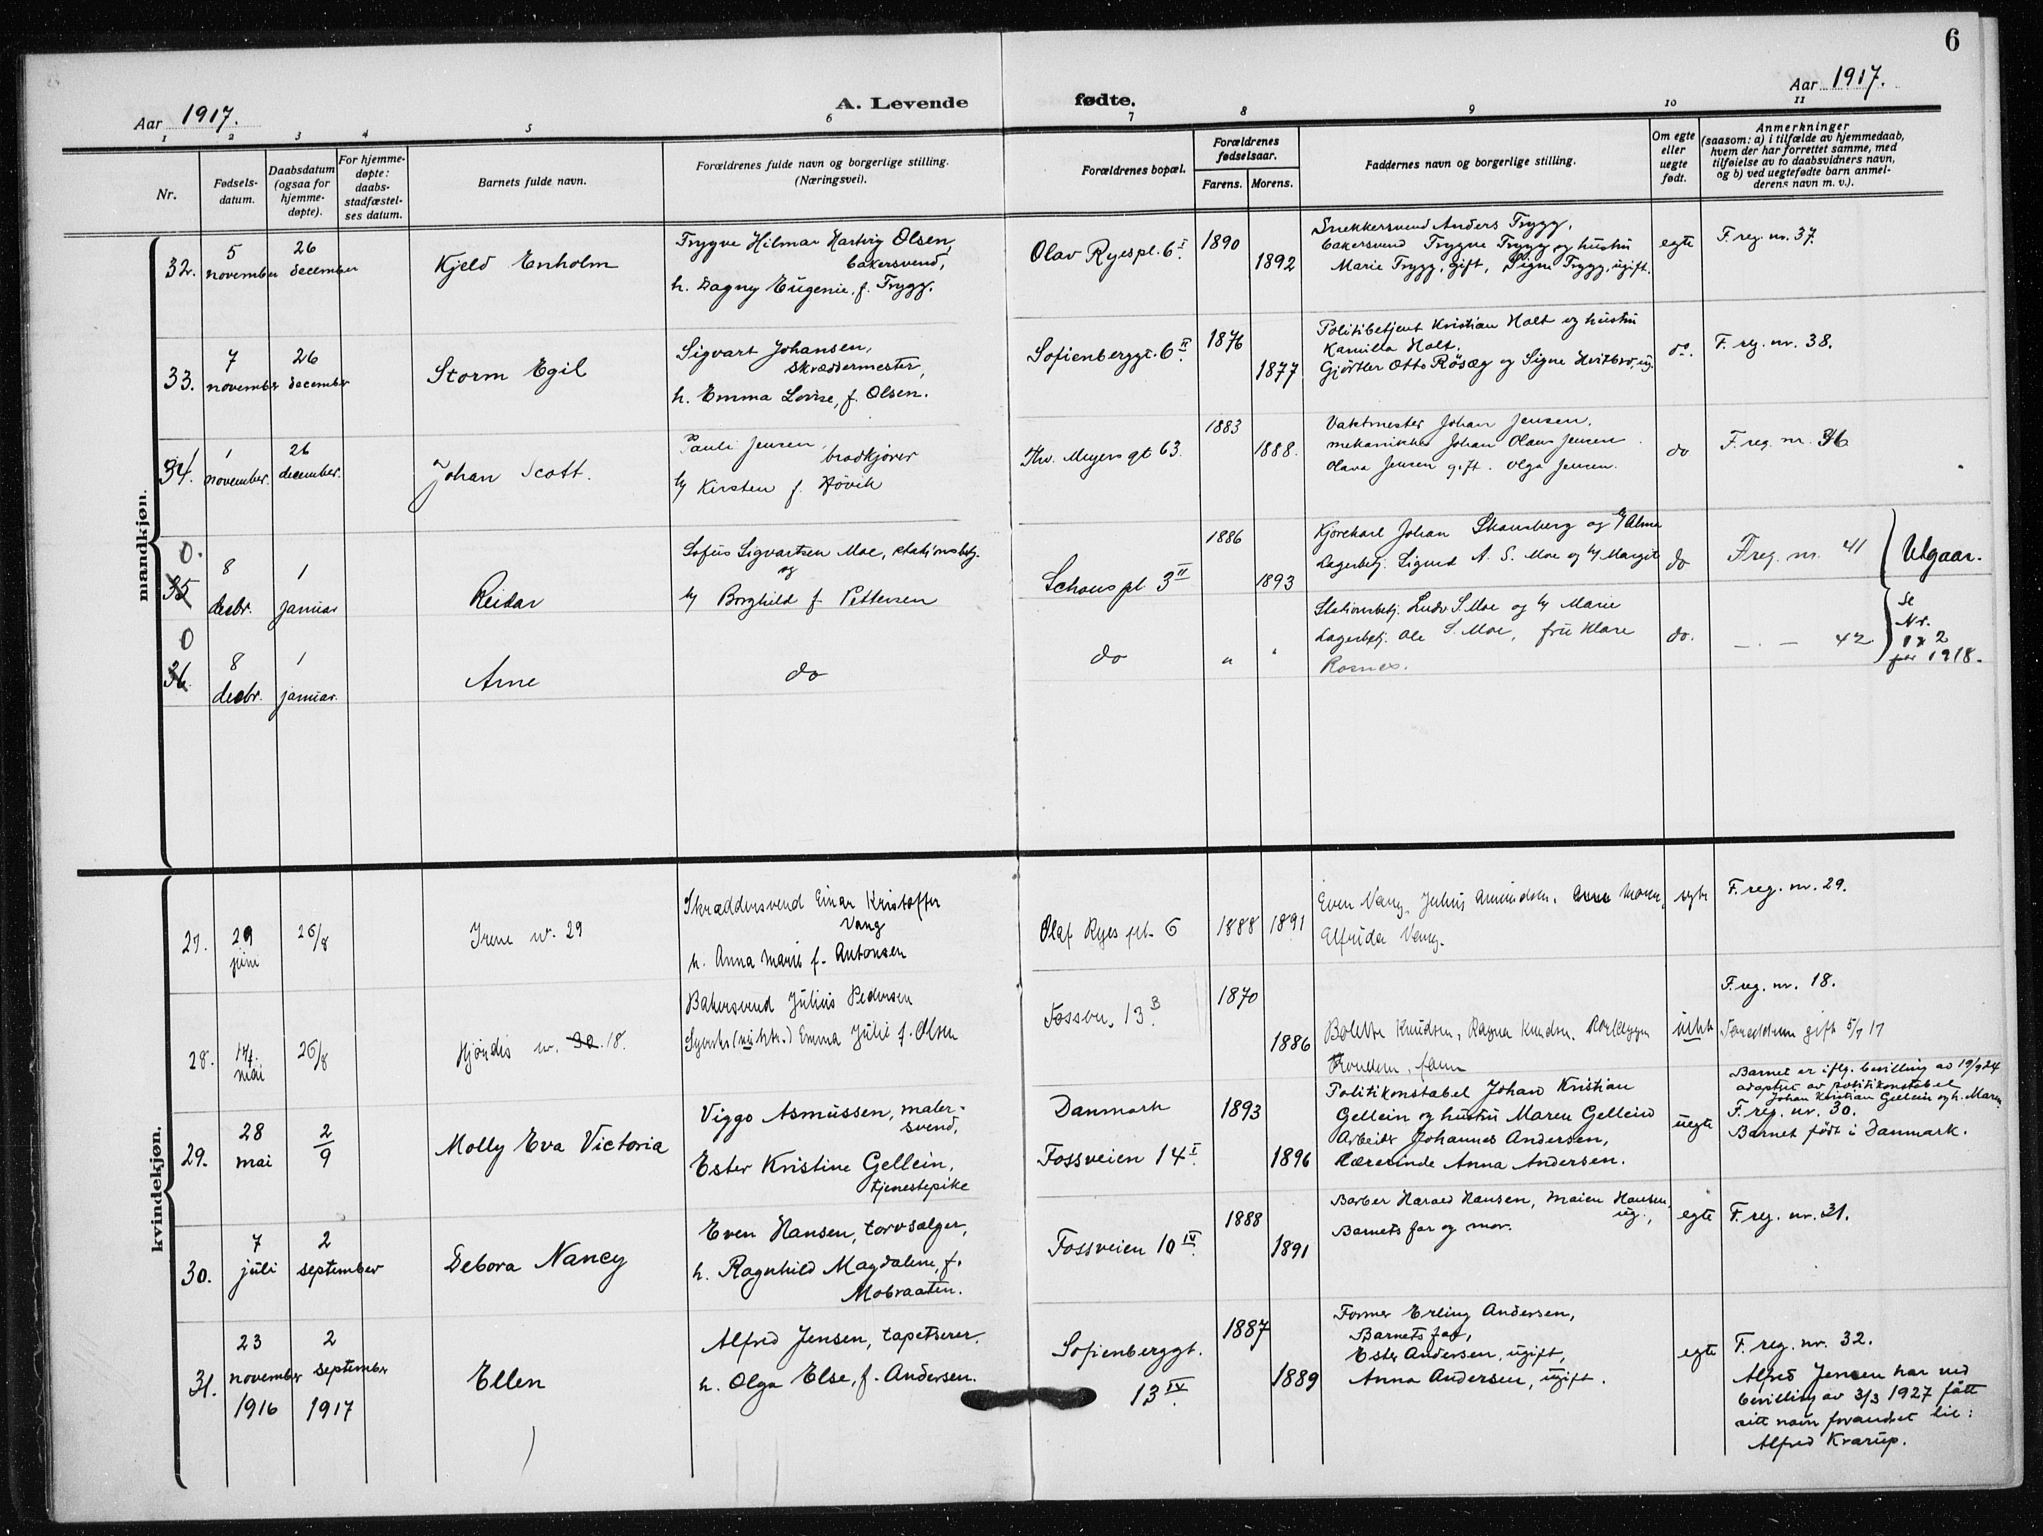 6
Aar 1917.
A. Levende fødte.
Aar 1917.
1 2 3 4 5 6 7 8 9 10 11
Nr.
Fødsels-
datum.
Daabsdatum
(ogsaa for
hjemme-
døpte).
For hjemme-
døpte:
daabs-
stadfæstel-
ses datum.
Barnets fulde navn.
Forældrenes fulde navn og borgerlige stilling.
(Næringsvei).
Forældrenes bopæl.
Forældrenes
fødselsaar.
Farens. Morens.
Faddernes navn og borgerlige stilling.
Om egte
eller
uegte
født.
Anmerkninger
(saasom: a) i tilfælde av hjemmedaab,
hvem der har forrettet samme, med
tilføielse av to daabsvidners navn,
og b) ved uegtefødte barn anmel-
derens navn m. v.).
mandkjøn.
32.
5
november
26
december
Kjeld Enholm
Trygve Hilmar Hartvig Olsen,
bakersvend,
h. Dagny Eugenie, f. Trygg.
Olav Ryespl. 6 I.
1890
1892
Snekkersvend Anders Trygg,
bakersvend Trygve Trygg og hustru
Marie Trygg, gift, Signe Trygg, ugift.
egte
F. reg. nr. 37.
33.
7
november
26
december
Storm Egil
Sigvart Johansen,
skræddermester,
h. Emma Lovise, f. Olsen.
Sofienberggt. 6 II.
1876
1877
Politibetjent Kristian Holt og hustru
Kamilla Holt.
Gjørtler Otto Røsæg og Signe
do.
F. reg. nr. 38.
34.
1
november.
26
december.
Johan Scott.
Pauli Jensen,
brødkjører
h/ Kirsten f. Høvik
Thv. Meyers gt 63.
1883
1888.
Vaktmester Johan Jensen.
mekaniker Johan Olaus Jensen
Olava Jensen gift. Olga Jensen.
do
F. reg. nr. 36
0.
35
8
desbr.
1
januar
Reidar
Sofus Sigvartsen Moe, stationsbetj.
og
h/ Borghild f. Pettersen
Schous pl. 3 II
1886
1893
Kjørekarl Johan Skansberg og h/ Alma
Lagerbetj. Sigurd A. S. Moe og h/ Margit
do
F. reg. nr. 41
Utgaar.
0
36.
8
desbr.
1
januar.
Arne
do
do
"
"
Stationsbetj. Ludv. S. Moe og h/ Marie
Lagerbetj. Ole S. Moe, frk Klara
do.
— . — 42
Se
Nr.
1 & 2
for 1918.
kvindekjøn.
27.
29
juni
26/8
Irene nr. 29
Skræddersvend Einar Kristoffer
Vang
h. Anna Marie f. Antonsen
Olaf Ryes pl. 6
1888
1891
Even Vang, Julius Amundsen,
Elfrida Vang.
egte
F. reg. nr. 29.
28.
14/
mai
26/8
Hjørdis nr. 30. 18.
Bakersvend Julius Pedersen
Emma Julie f. Olsen
Fossvn. 13 B.
1870
1886
Bolette Knudsen, Ragna Knudsen,
F. reg. nr. 18.
Foreldrene gift 5/9 17
29.
28
mai
2
9
Molly Eva Victoria
Viggo Asmussen, maler-
svend,
Ester Kristine Gellein,
tjenestepike
Danmark
Fossveien 14 I.
1893
1896
Politikonstabel Johan Kristian
Gellein og hustru Maren Gellein
Arbeider Johannes Andersen,
Lærerinde Anna Andersen.
uegte
Barnet er iflg. bevilling av 19/9 24
adoptert av politikonstabel
Johan Kristian Gellein og h. Maren
F. reg. nr. 30.
Barnet født i Danmark.
30.
7
juli
2
september
Debora Nancy
Even Hansen, torvsælger,
h. Ragnhild Magdalene, f.
Mobraaten.
Fossveien 10 IV.
1888
1891
Barber Harald Hansen, Maien Hansen,
ug.,
Barnets far og mor.
egte
F. reg. nr. 31.
31.
23
november
1916
2
september
1917
Ellen
Alfred Jensen, tapetserer.
h. Olga Else, f. Andersen.
Sofienberggt.
13 IV.
1887
1889
Former Erling Andersen,
Barnets far,
Ester Andersen, ugift,
Anna Andersen, ugift.
egte
F. reg. nr. 32.
Alfred Jensen har ved
bevilling av 3/3 1927 fått
sitt navn forandret til:
Alfred Kvarup.